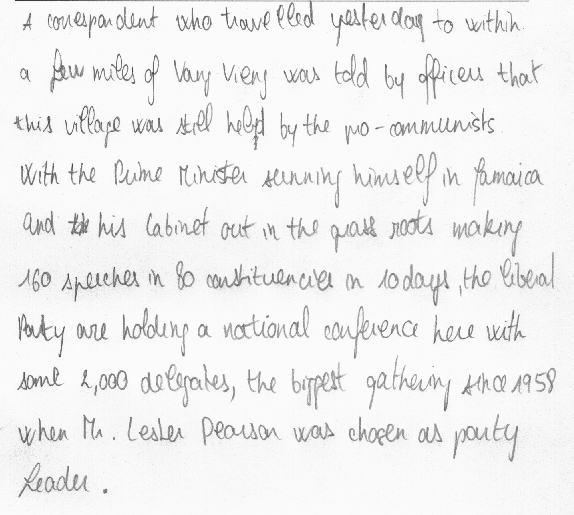 A correspondent who travelled yesterday to within
a few miles of Vang Vieng was told by officers that
this village was still held by the pro-communists.
With the Prime Minister sunning himself in Jamaica
and his Cabinet out in the grass roots making
160 speeches in 80 constituencies in 10 days, the Liberal
Party are holding a national conference here with
some 2,000 delegates, the biggest gathering since 1958
when Mr. Lester Pearson was chosen as party
leader.